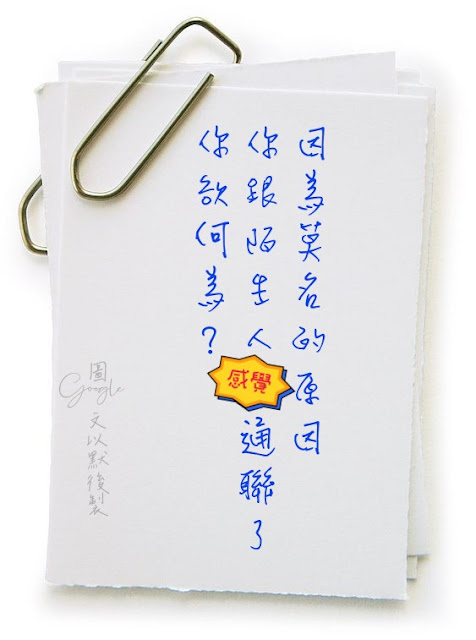 因為莫名的原因
你跟陌生人感覺通聯了
你欲何為?
圖
Google
文以默後製